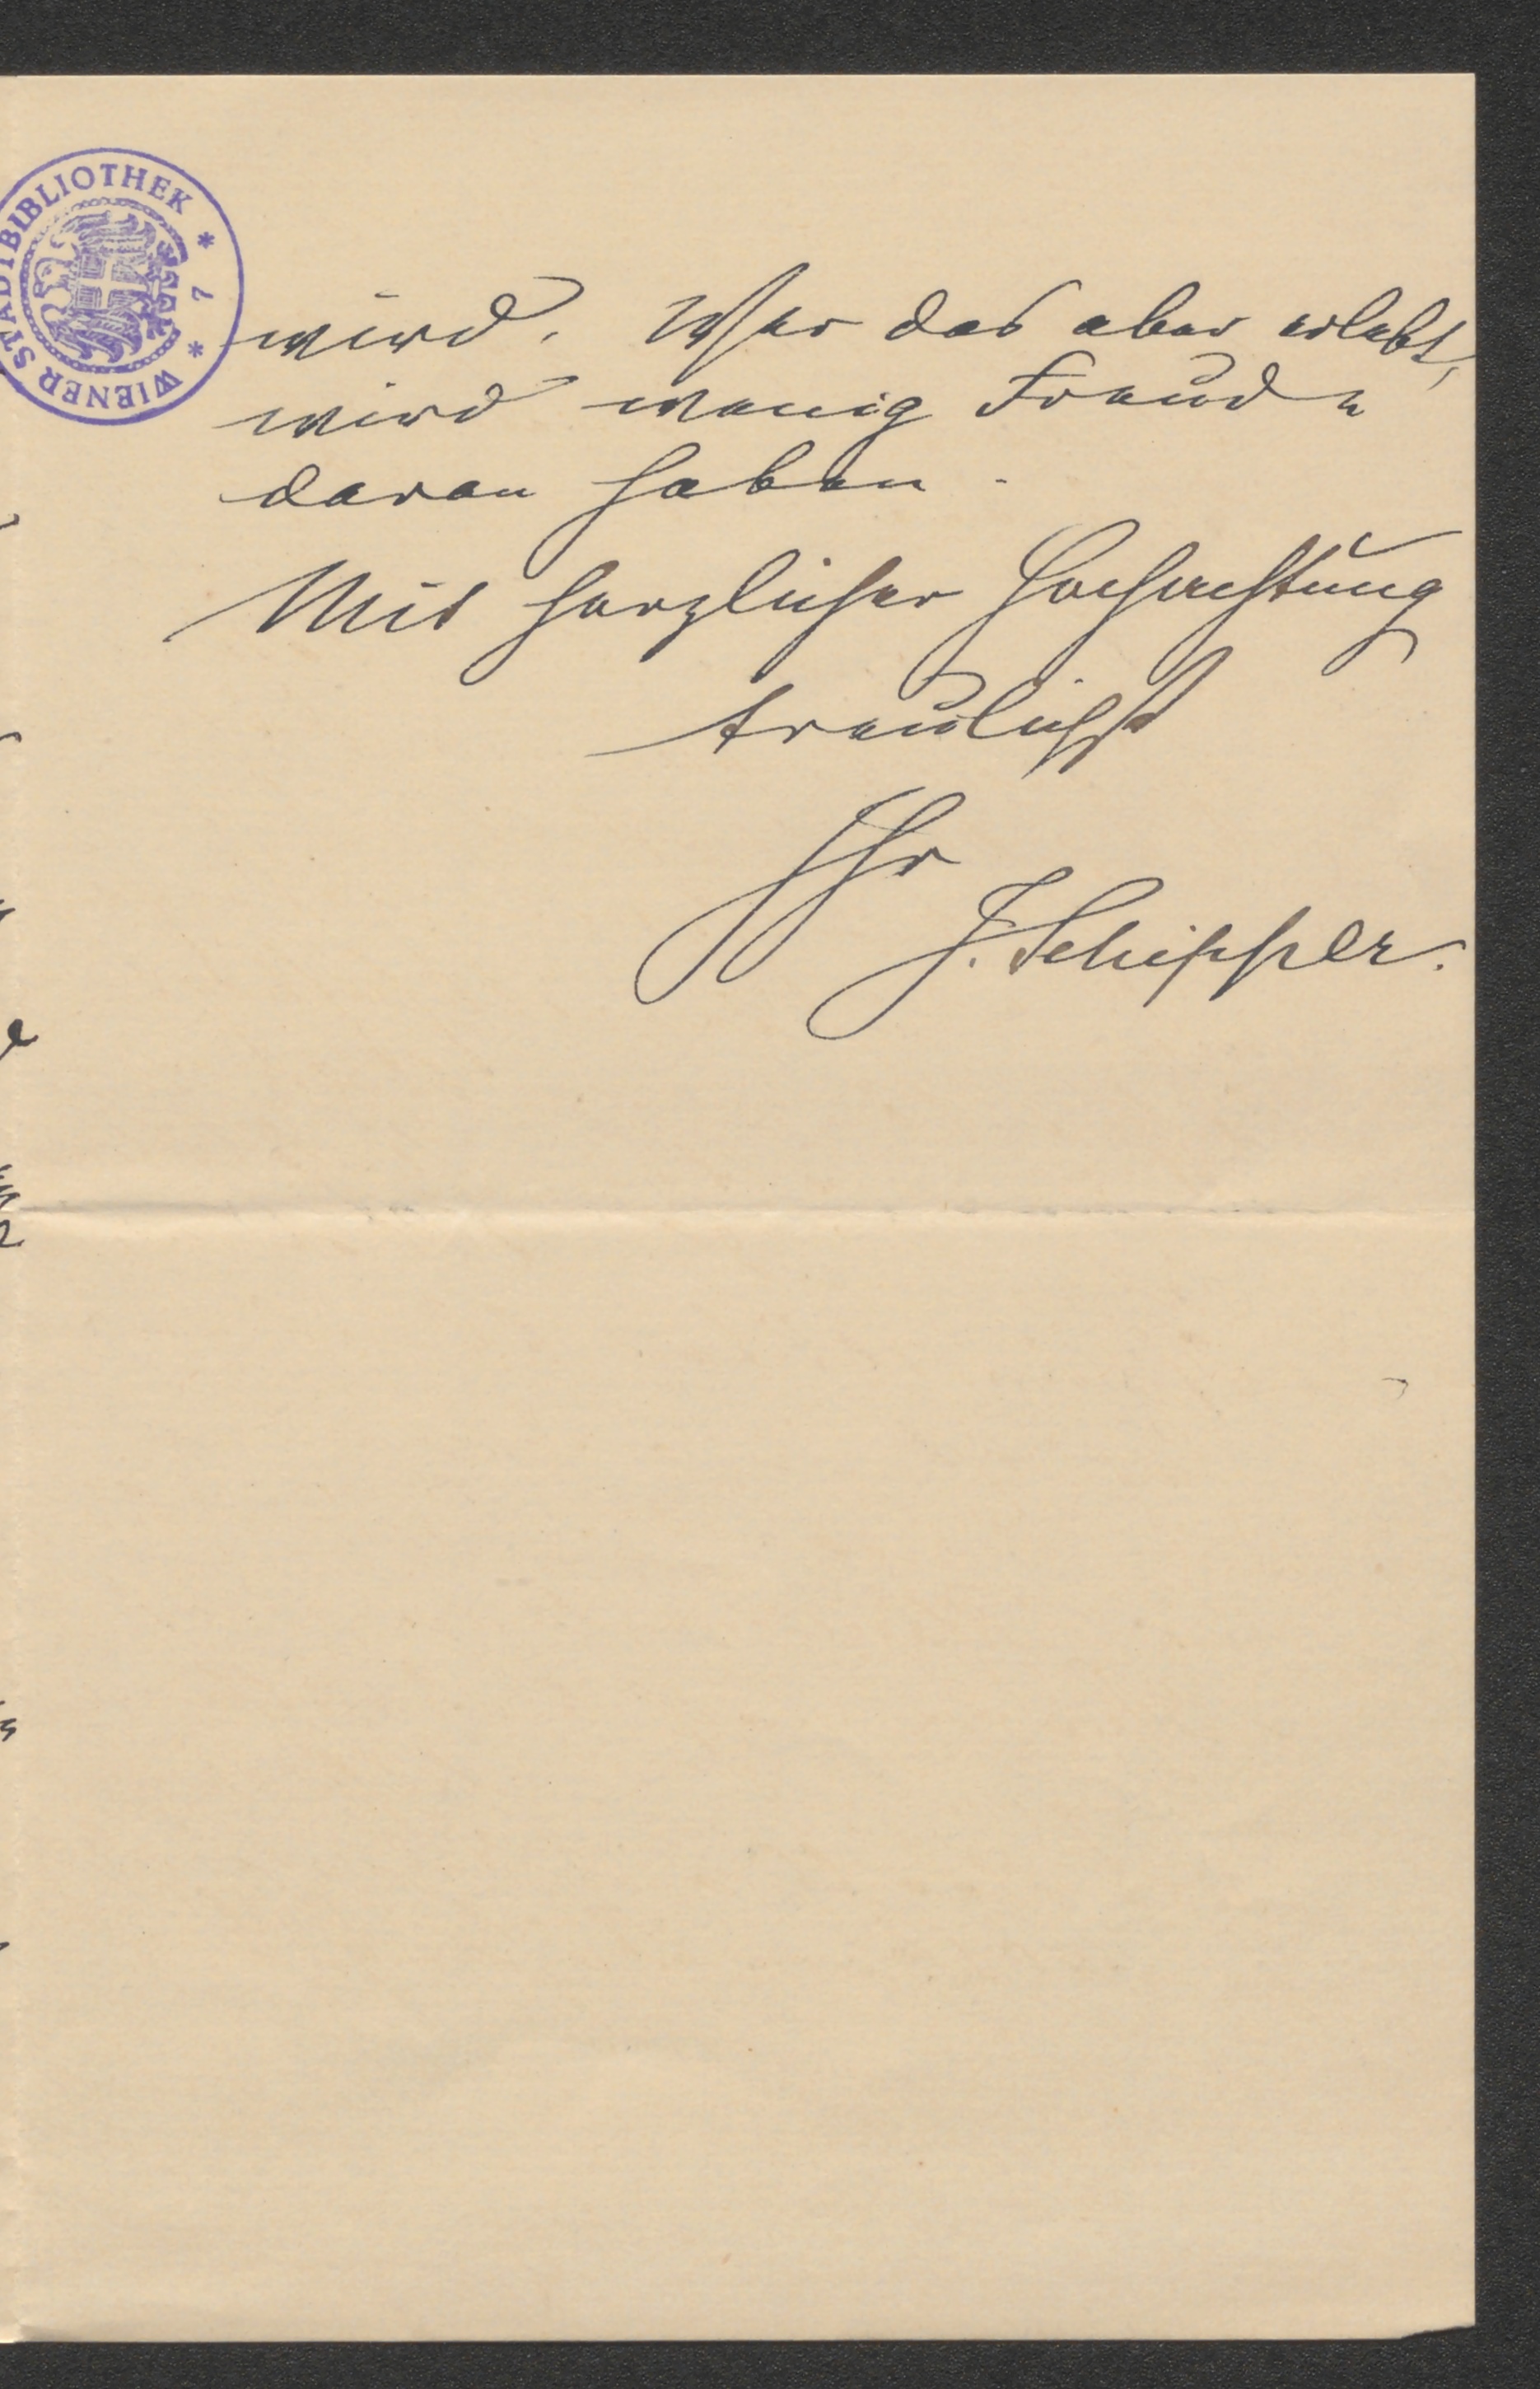 WIENER STADTBIBLIOTHEK * 7 *
wird. Wer das aber erlebt,
wird wenig Freude
daran haben.
Mit herzlicher Hochachtung
treulichst
Ihr
J. Schipper.